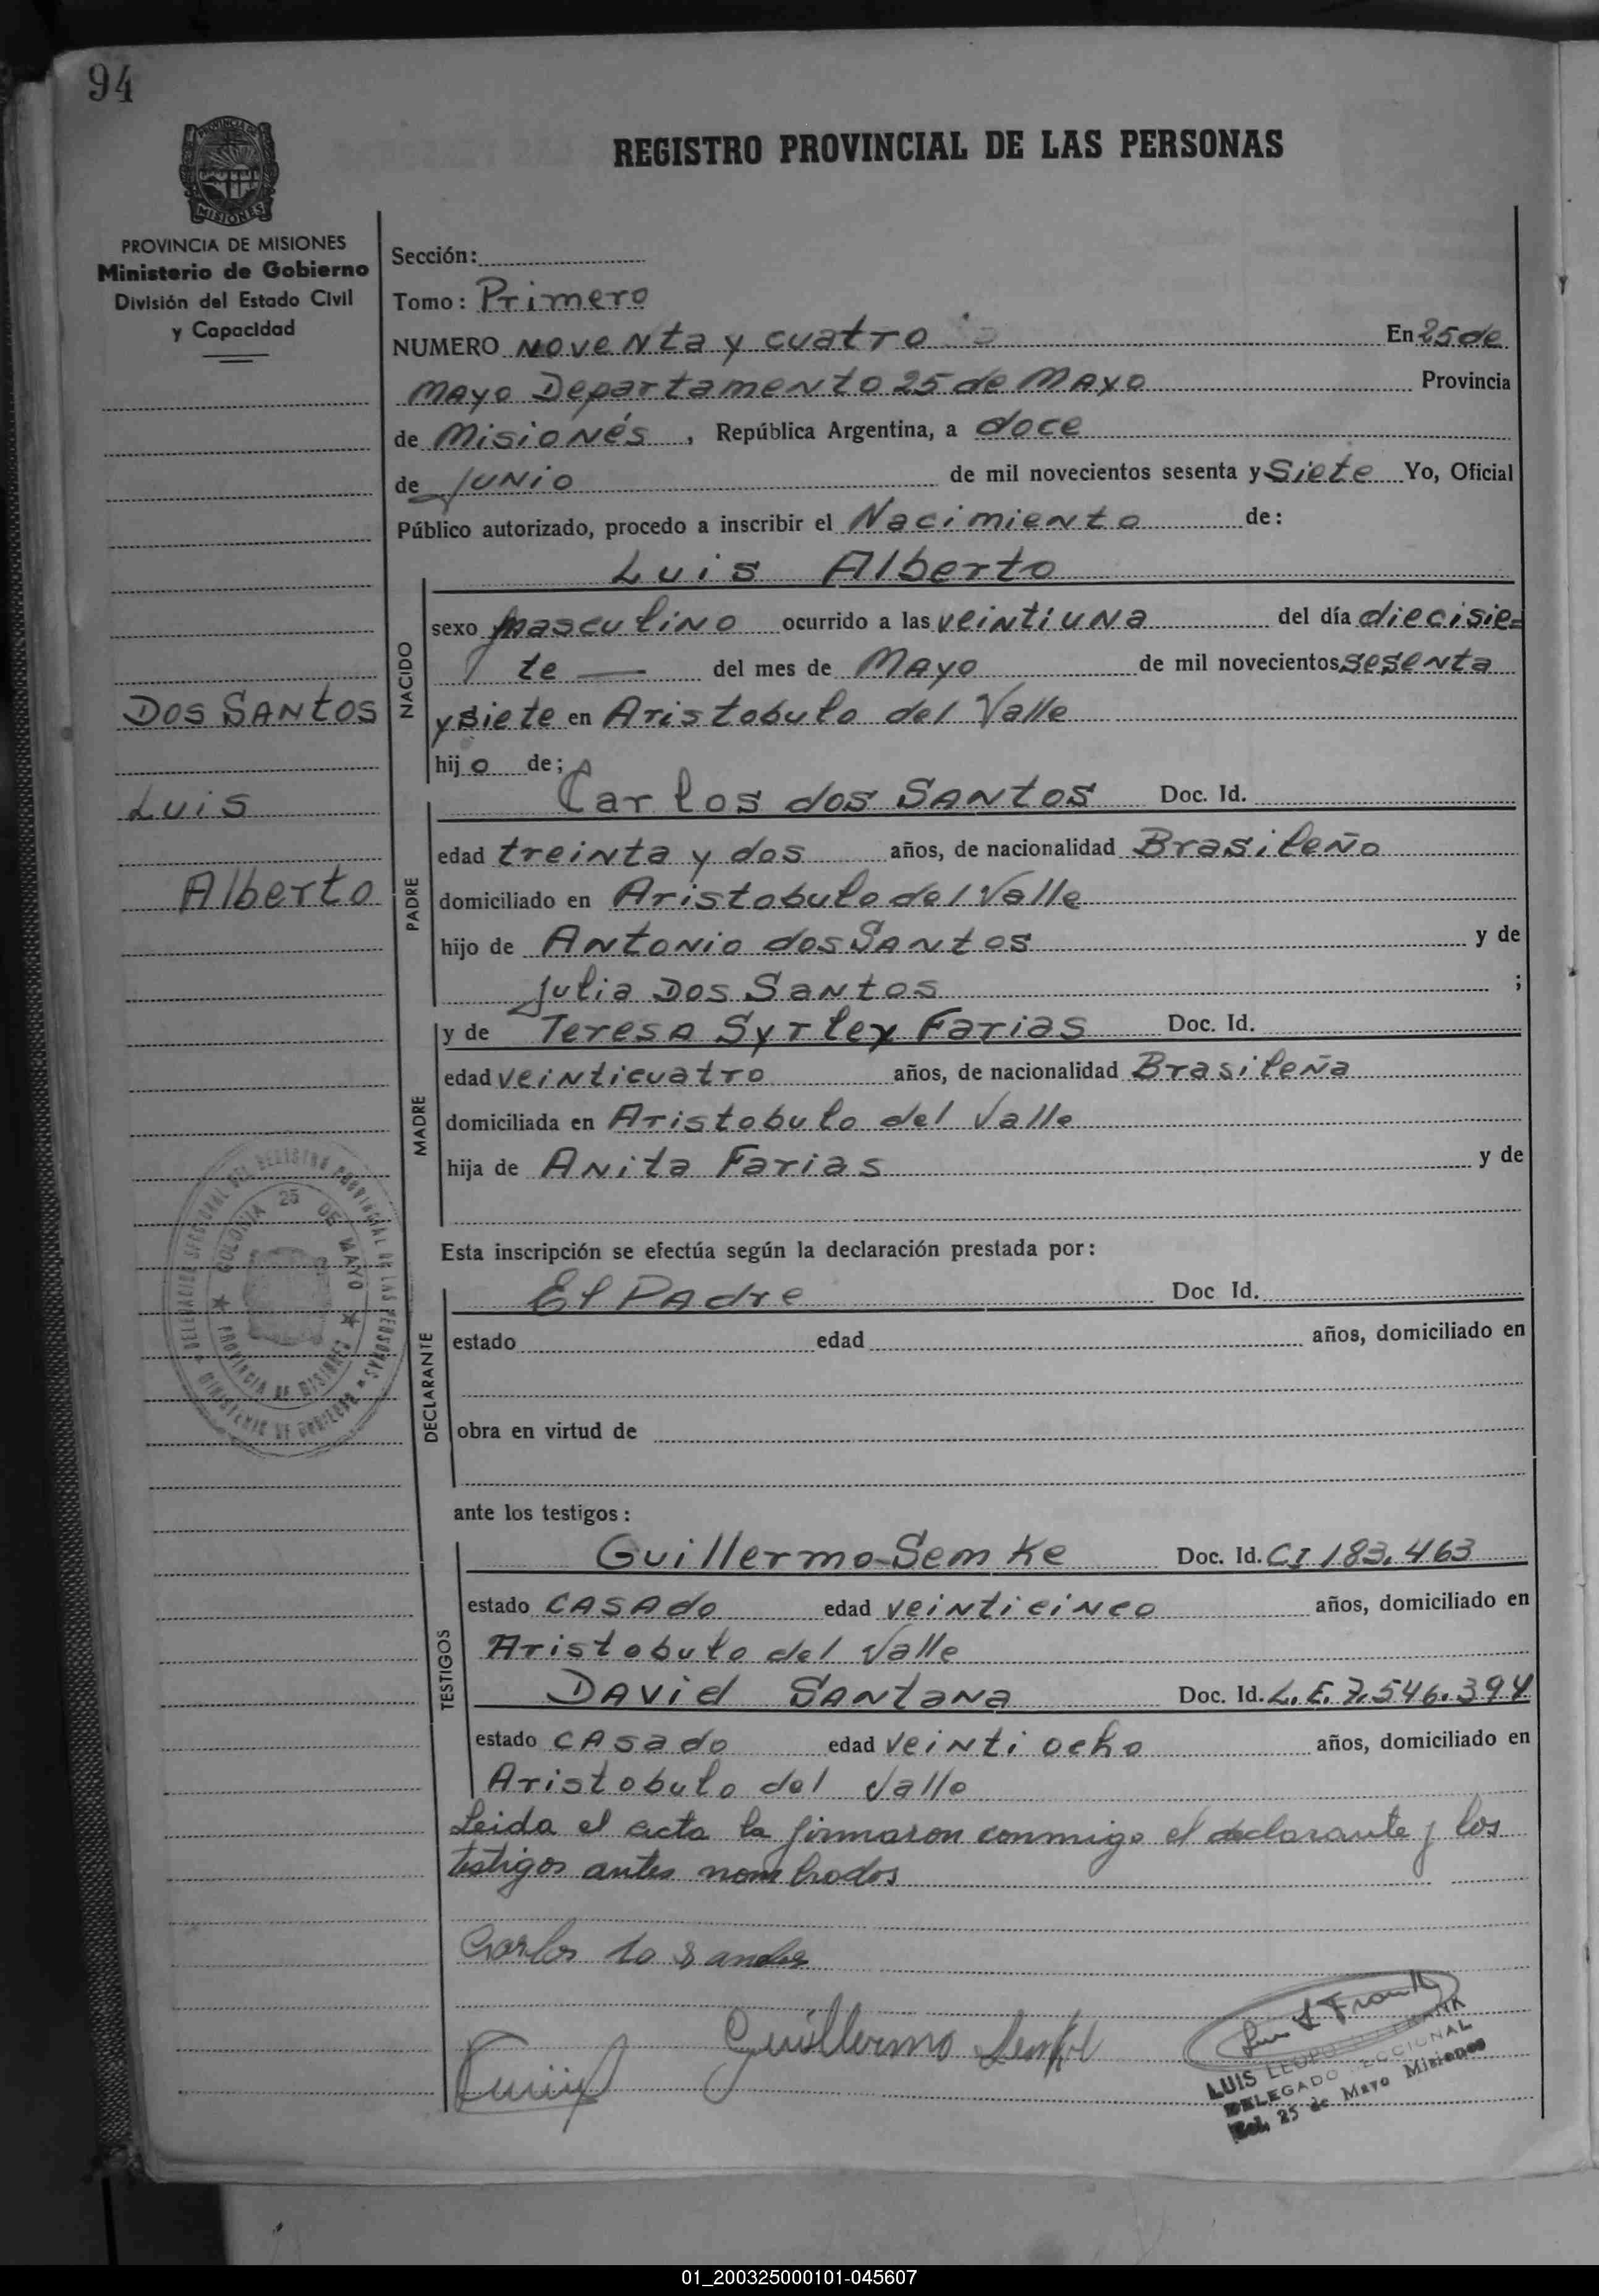 94
REGISTRO PROVINCIAL DE LAS PERSONAS
PROVINCIA DE
MISIONES
PROVINCIA DE MISIONES
Ministerio de Gobierno
División del Estado Civil
y Capacidad
Sección:
Tomo: Primero
NUMERO noventa y cuatro En 25 de
Mayo Departamento 25 de Mayo Provincia
de Misionés, República Argentina, a doce
de Junio de mil novecientos sesenta y Siete Yo, Oficial
Público autorizado, procedo a inscribir el Nacimiento de:
Luis Alberto
NACIDO
sexo masculino ocurrido a las veintiuna del día diecisie=
te — del mes de Mayo de mil novecientos sesenta
y siete en Aristobulo del Valle
hijo de;
Dos Santos
Luis
Alberto
PADRE
Carlos dos Santos Doc. Id.
edad treinta y dos años, de nacionalidad Brasileño
domiciliado en Aristobulo del Valle
hijo de Antonio dos Santos y de
Julia Dos Santos ;
MADRE
y de Teresa Syrley Farias Doc. Id.
edad veinticuatro años, de nacionalidad Brasileña
domiciliada en Aristobulo del Valle
hija de Anita Farias y de
DELEGACION SECCIONAL DEL REGISTRO PROVINCIAL DE LAS PERSONAS
MINISTERIO DE GOBIERNO
COLONIA 25 DE MAYO
PROVINCIA DE MISIONES
Esta inscripción se efectúa según la declaración prestada por:
DECLARANTE
El Padre Doc Id.
estado edad años, domiciliado en
obra en virtud de
ante los testigos:
TESTIGOS
Guillermo Semke Doc. Id. CI 183.463
estado Casado edad veinticinco años, domiciliado en
Aristobulo del Valle
David Santana Doc. Id. L.E. 7.546.394
estado Casado edad veinti ocho años, domiciliado en
Aristobulo del Valle
Leida el acta la firmaron conmigo el declarante y los
testigos antes nombrados
Carlos
Guillermo
Luis L Frank
LUIS LEOPOLDO FRANK
DELEGADO SECCIONAL
Col. 25 de Mayo Misiones
01_200325000101-045607